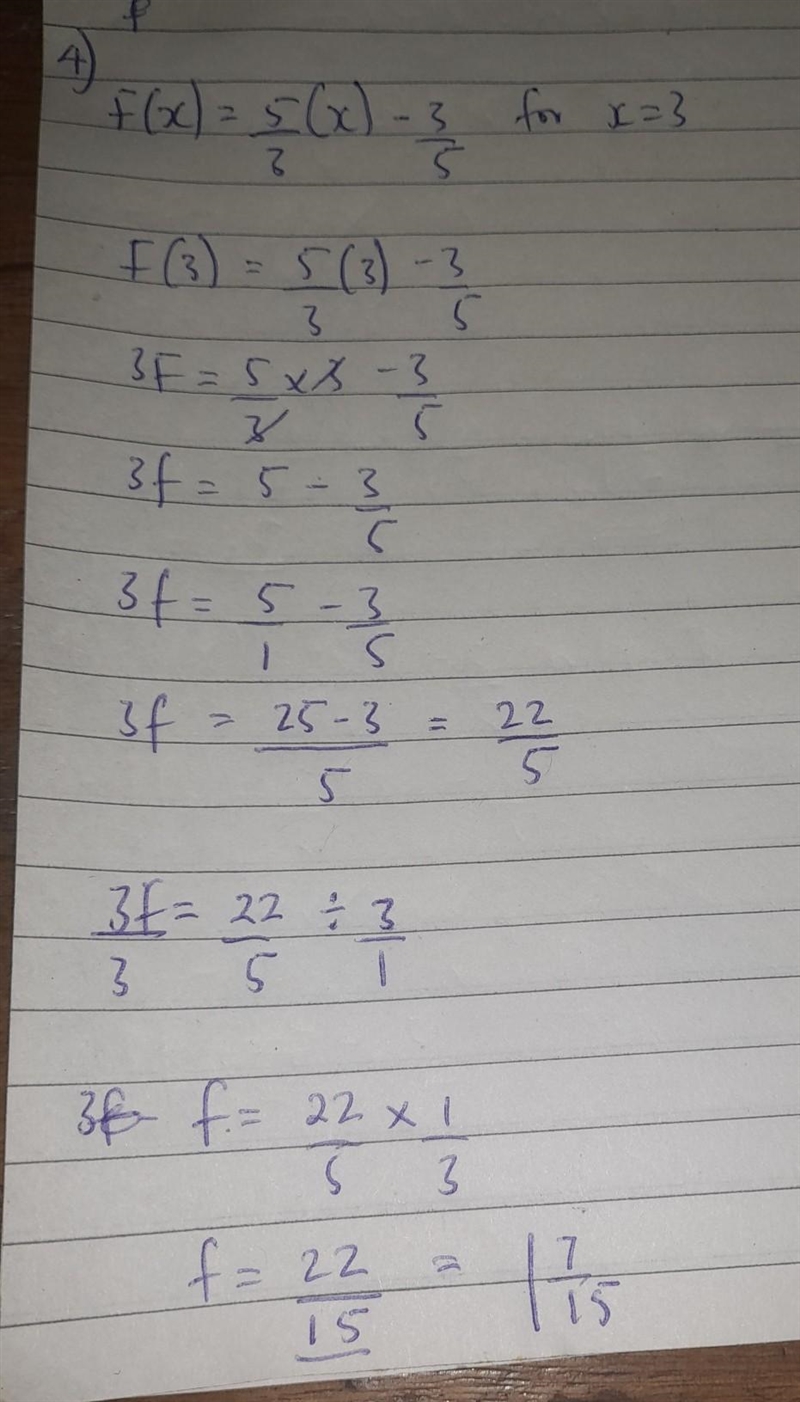 4)
F(x) = 5/3 (x) - 3/5 for x=3
F(3) = 5/3 (3) - 3/5
3F = 5/3 x 3 - 3/5
3f = 5 - 3/5
3f = 5/1 - 3/5
3f = 25-3/5 = 22/5
3f/3 = 22/5 ÷ 3/1
3f f = 22/5 x 1/3
f = 22/15 = 1 7/15